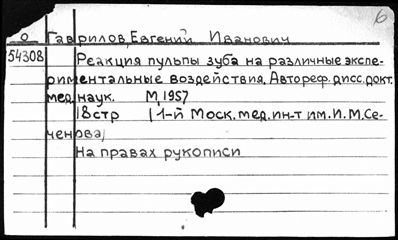 б
о Гаврилов, Евгений Иванович
54308 Реакция пульпы зуба на различные экспе-
риментальные воздействия. Автореф. дисс. докт.
мед. наук. М, 1957
18 стр (1-й Моск. мед. ин-т им. И. М. Се-
ченова)
На правах рукописи